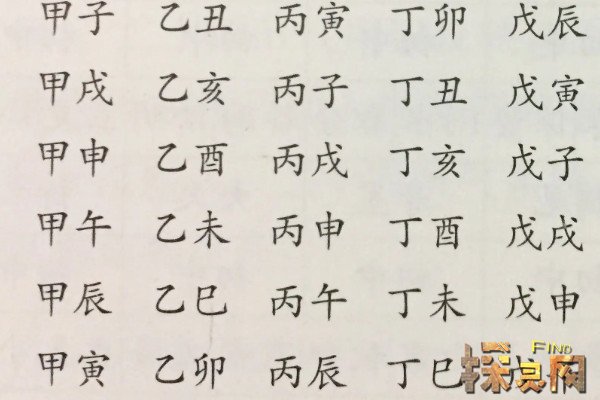 甲子 乙丑 丙寅 丁卯 戊辰
甲戌 乙亥 丙子 丁丑 戊寅
甲申 乙酉 丙戌 丁亥 戊子
甲午 乙未 丙申 丁酉 戊戌
甲辰 乙巳 丙午 丁未 戊申
甲寅 乙卯 丙辰 丁巳
FIND
探灵网